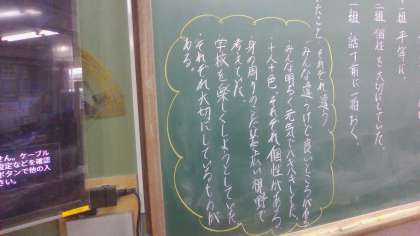 一組 平等に、
二組 個性を大切にしていた。
一組 話す前に一拍おく。
それぞれ違う
みんな違うけど良いところがある
みんな明るく元気でハキハキしていた。
・十人十色、それぞれ個性がある
・身の周りのことを広い視野で
考えていた。
学校を楽しくしようとしていた。
・それぞれ大切にしているものが
ある。
せん。ケーブル
設定などを確認
ボタンで他の入
さい。